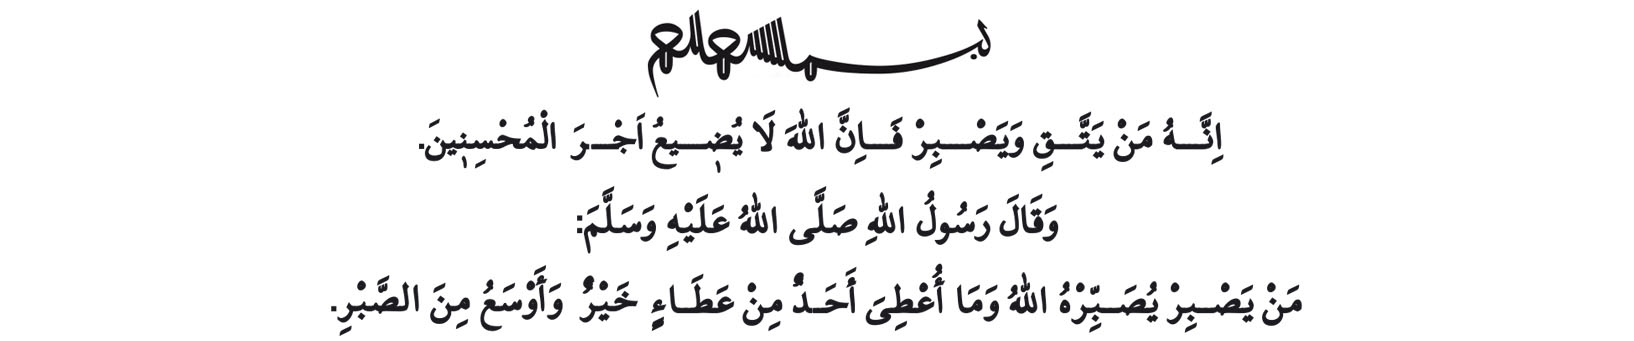 بسم الله الرحمن الرحيم
اِنَّـهُ مَنْ يَتَّـقِ وَيَصْـبِرْ فَـاِنَّ اللهَ لَا يُضٖـيعُ اَجْـرَ الْمُحْسِنٖينَ.
وَقَالَ رَسُولُ اللهِ صَلَّى اللهُ عَلَيْهِ وَسَلَّمَ:
مَنْ يَصْـبِرْ يُصَـبِّرْهُ اللهُ وَمَا أُعْطِىَ أَحَـدٌ مِنْ عَطَـاءٍ خَيْرٌ وَأَوْسَعُ مِنَ الصَّبْرِ.